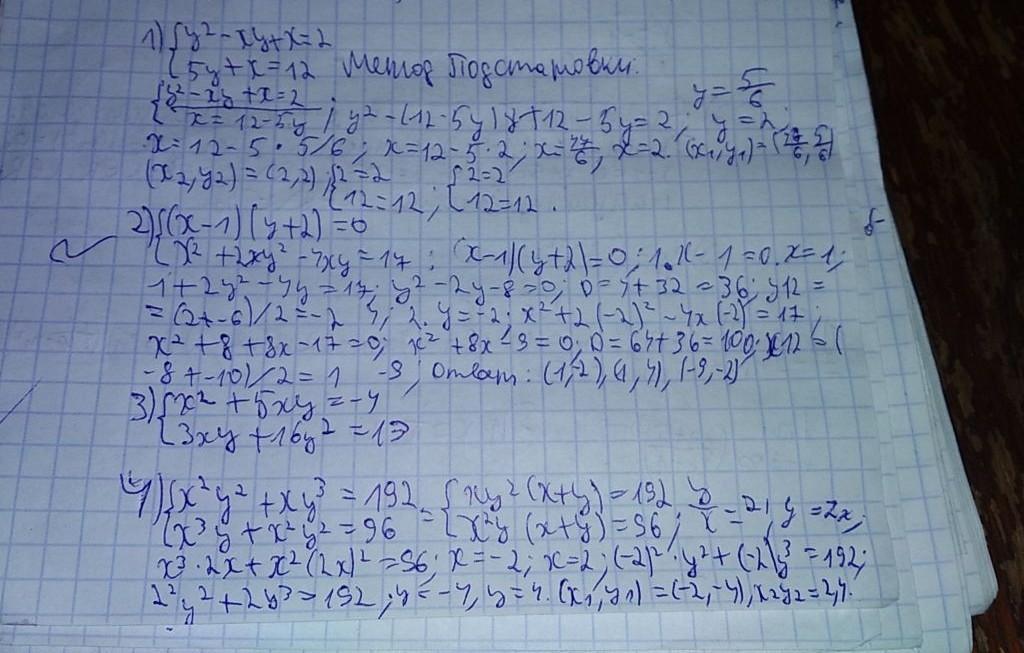 1) { y² - xy + x = 2
{ 5y + x = 12 Метод Подстановки.
{ y² - xy + x = 2 y = 5/6
x = 12 - 5y ; y² - (12 - 5y) y + 12 - 5y = 2 ; y = 2 ;
x = 12 - 5 · 5/6 ; x = 12 - 5 · 2 ; x = 47/6 , x = 2 . (x₁, y₁) = (47/6, 5/6)
(x₂, y₂) = (2, 2) ; { 2 = 2 { 2 = 2
{ 12 = 12 ; { 12 = 12 .
2) { (x - 1)(y + 2) = 0
{ x² + 2xy² - 4xy = 17 ; (x - 1)(y + 2) = 0 ; 1. x - 1 = 0. x = 1 ;
1 + 2y² - 4y = 17 ; y² - 2y - 8 = 0 ; D = 4 + 32 = 36 ; y12 =
= (2 + - 6) / 2 = -2 4 ; 2. y = -2 ; x² + 2 (-2)² - 4x (-2) = 17 ;
x² + 8 + 8x - 17 = 0 ; x² + 8x - 9 = 0 ; D = 64 + 36 = 100 ; x12 = (
-8 + - 10) / 2 = 1 -9 ; Ответ : (1, -2), (1, 4), (-9, -2)
3) { x² + 5xy = -4
{ 3xy + 16y² = 13
4) { x²y² + xy³ = 192 = { xy² (x + y) = 192 y/x = 2 , y = 2x ;
{ x³y + x²y² = 96 { x²y (x + y) = 96 ;
x³ · 2x + x² (2x)² = 96 ; x = -2 ; x = 2 ; (-2)² · y² + (-2) y³ = 192 ;
2²y² + 2y³ = 192 ; y = -4 , y = 4 . (x₁, y₁) = (-2, -4), x₂y₂ = 2,4.